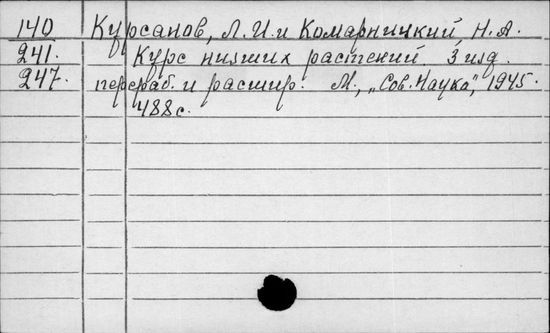 140 Курсанов, Л.И. и Комарницкий, Н.А.
241. Курс низших растений. 3 изд.
247. перераб. и расшир. М., „Сов. Наука", 1945.
488 с.